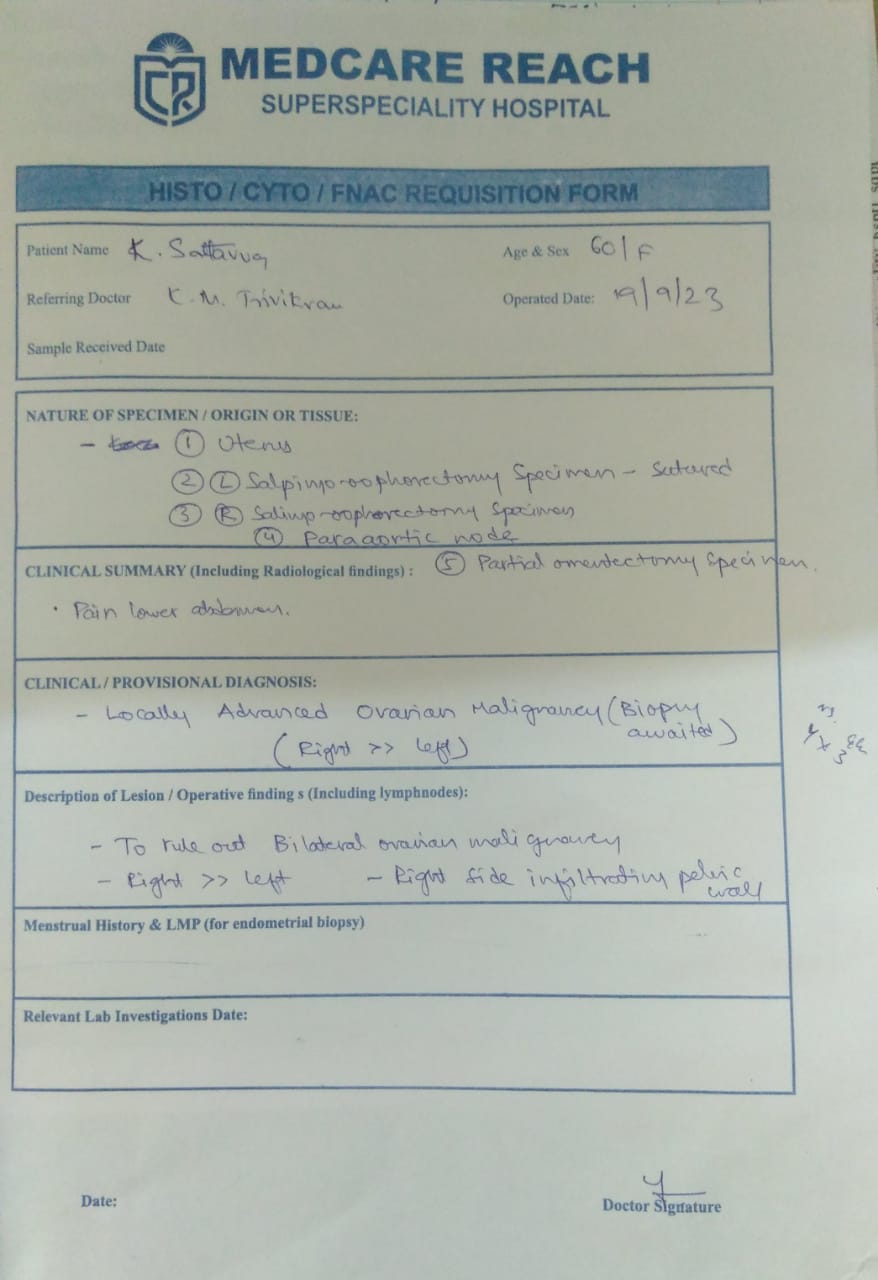 MEDCARE REACH
SUPERSPECIALITY HOSPITAL
HISTO / CYTO / FNAC REQUISITION FORM
Patient Name K. Sattavva Age & Sex 60/F
Referring Doctor K. M. Trivikram Operated Date: 19/9/23
Sample Received Date
NATURE OF SPECIMEN / ORIGIN OR TISSUE:
- ① Uterus
② Ⓛ Salpingo-oophorectomy Specimen - Sutured
③ Ⓡ Salingo-oophorectomy Specimen
④ Paraaortic node
CLINICAL SUMMARY (Including Radiological findings) : ⑤ Partial omentectomy Specimen.
· Pain lower abdomen.
CLINICAL / PROVISIONAL DIAGNOSIS:
- Locally Advanced Ovarian Malignancy (Biopsy
awaited)
(Right >> left)
Description of Lesion / Operative finding s (Including lymphnodes):
- To rule out Bilateral ovarian malignancy
- Right >> left - Right side infiltrating pelvic
wall
Menstrual History & LMP (for endometrial biopsy)
Relevant Lab Investigations Date:
Date:
Doctor Signature